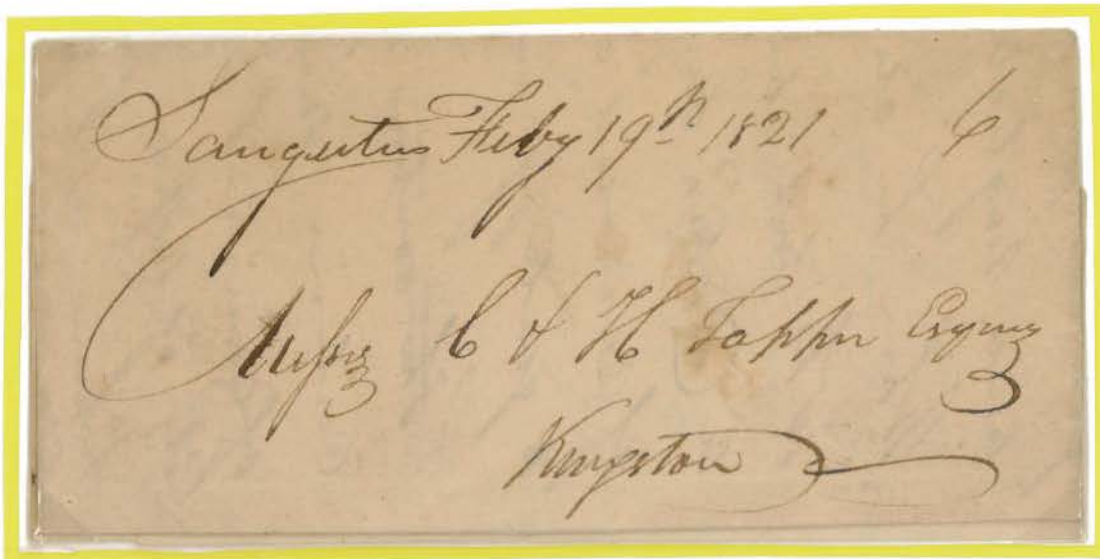 Saugerties Feby 19th 1821 6
Messrs C & H Tappen Esqrs
Kingston